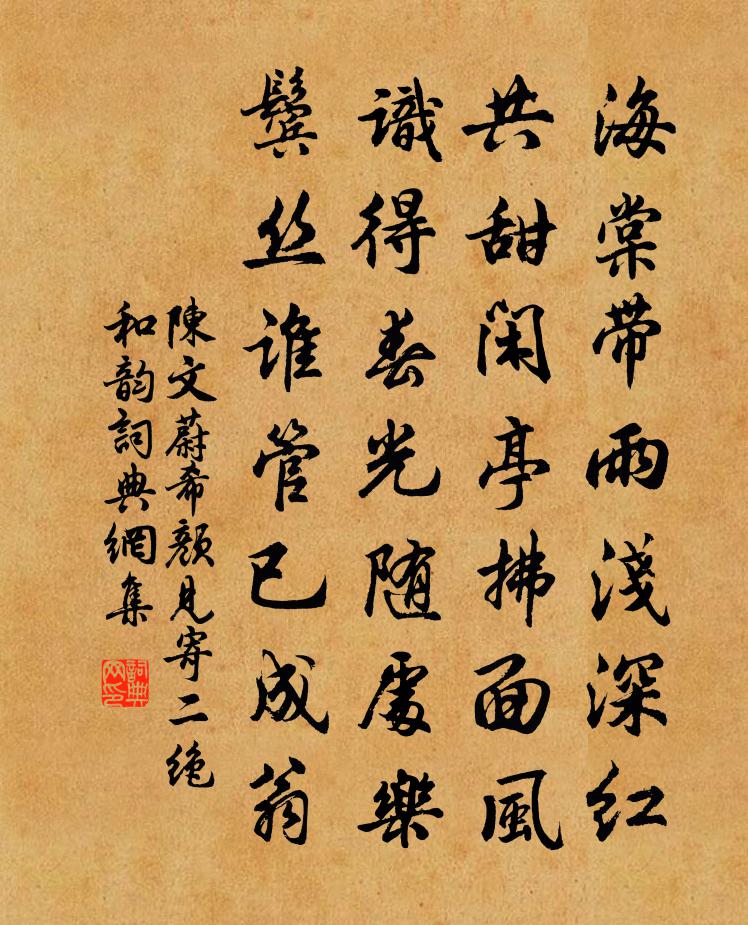 海棠带雨淺深红
共甜闲亭拂面風
識得春光随處樂
鬓丝谁管已成翁
陳文蔚希顏見寄二绝
和韵詞典網集
詞典
网印